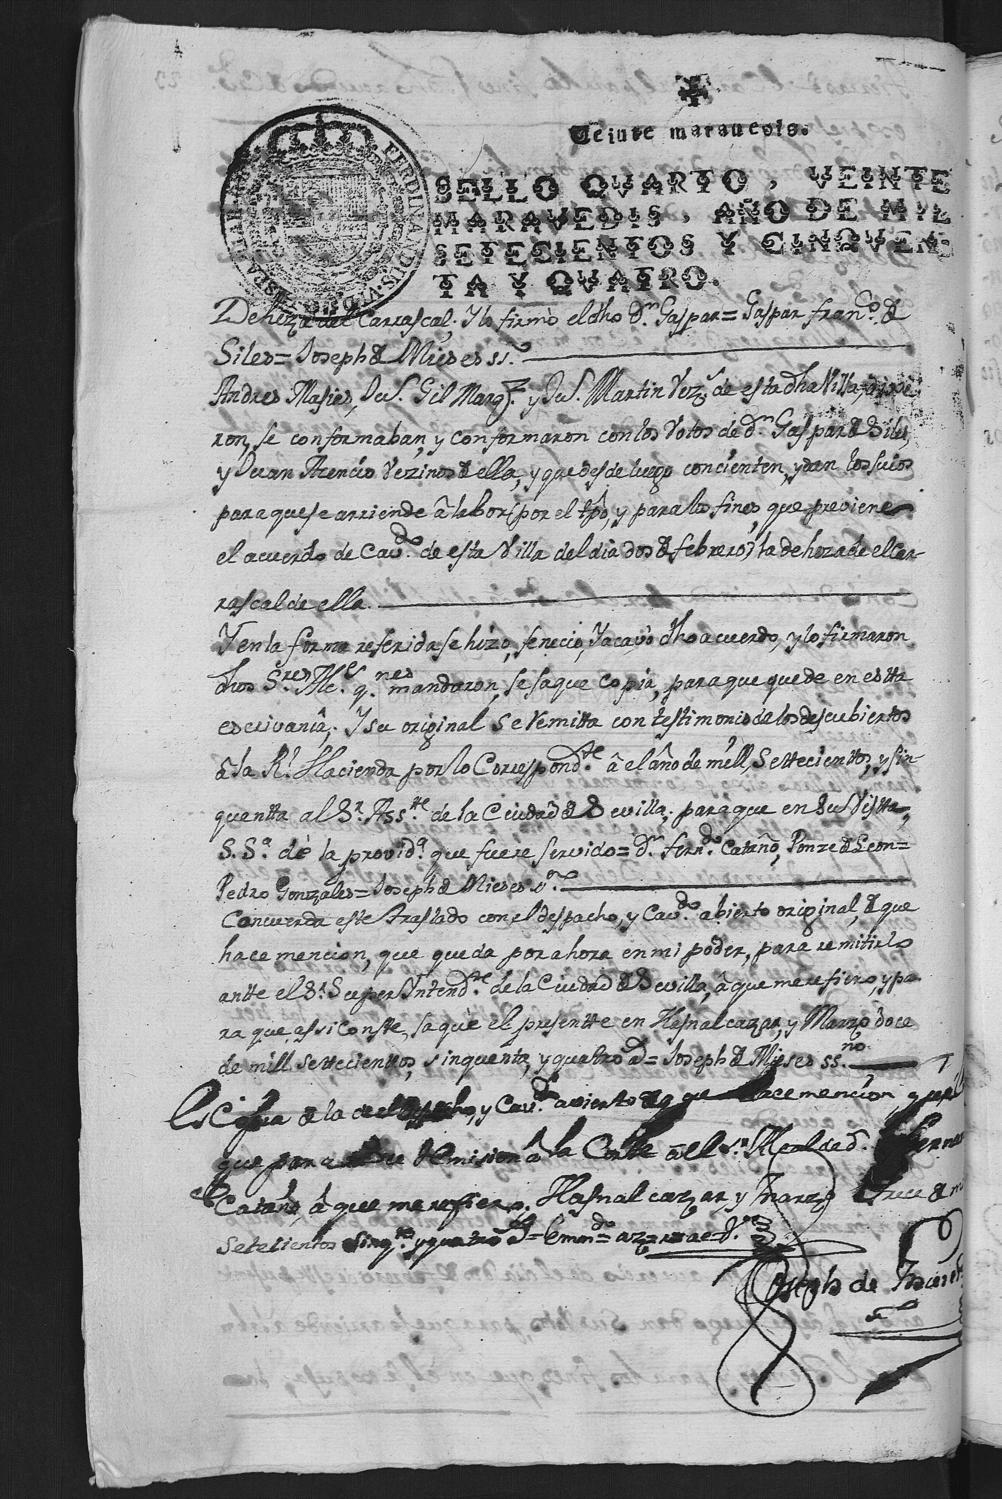 Veinte marauedis.
FERDINANDUS VI D G HISPANIAR REX
SELLO QVARTO, VEINTE
MARAVEDIS, AÑO DE MIL
SETECIENTOS Y CINQVEN-
TA Y QVATRO.
Deheza del Carrascal, Y lo firmò el dho Dn. Gaspar = Gaspar Franco. de
Siles = Joseph de Mieses ss.no
Andres Masies, Jun. Gil Marqz. y Jun. Martin Vezs. de esta dha Villa, dixe-
ron, se conformaban, y conformaron con los Votos de Dn. Gaspar de Siles,
y Juan Atencio Vezinos de ella, y que desde luego concienten, y dan los suios
para que se arriende â labor, por el tpô, y para los fines, que previene
el acuerdo de Cavdo. de esta Villa del dia dos de febrero, la deheza de el Car-
rascal de ella.
Y en la forma referida se hizo, feneciò, Y acavò dho acuerdo, y lo firmaron
dhos Sres Alces. qnes mandaron, se saque copia, para que quede en estta
escrivanîa, Y su original Se remitta con testimonio de los descubiertos
â la Rl. Hacienda por lo Correspondte. â el año de mill, Settecienttos, y sin-
quentta al Sr. Asste. de la Ciudad de Sevilla, para que en su Vistta,
S. Sa. dé la provida. que fuere servido = Dn. Ferndo. Cataño, Ponze de Leon =
Pedro Gonzales = Joseph de Mieses ss.no
Concuerda este traslado con el despacho, y Cavdo. abierto original, de que
hace mencion, que queda por ahora en mi poder, para remitirlo
antte el Sr. Super Yntendte. de la Ciudad de Sevilla, â que me refiero, y pa-
ra que assi conste, saquè el presentte en Hasnalcazar, y Marzo doce
de mill settecienttos, sinquenta, y quatro as = Joseph de Mieses ss.no
Es Copia de la de el despacho, y Cavdo. avierto de que hace mencion
que para su remision â la Corte â el Sr. Alcalde Dn. Fernando
Cataño, â que me refiero. Hasnalcazar y Marzo trece de
setecientos sinqta. y quatro as = Emmdo =
Joseph de Mieses